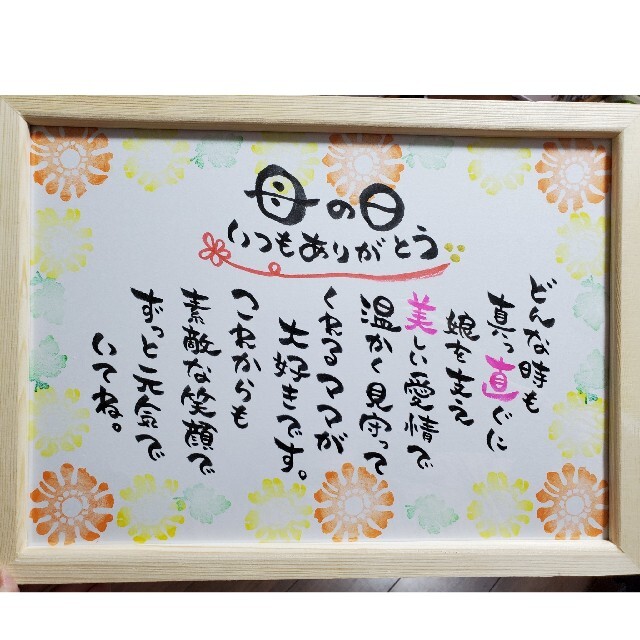 母の日
いつもありがとう
どんな時も
真っ直ぐに
娘を支え
美しい愛情で
温かく見守って
くれるママが
大好きです。
これからも
素敵な笑顔で
ずっと元気で
いてね。